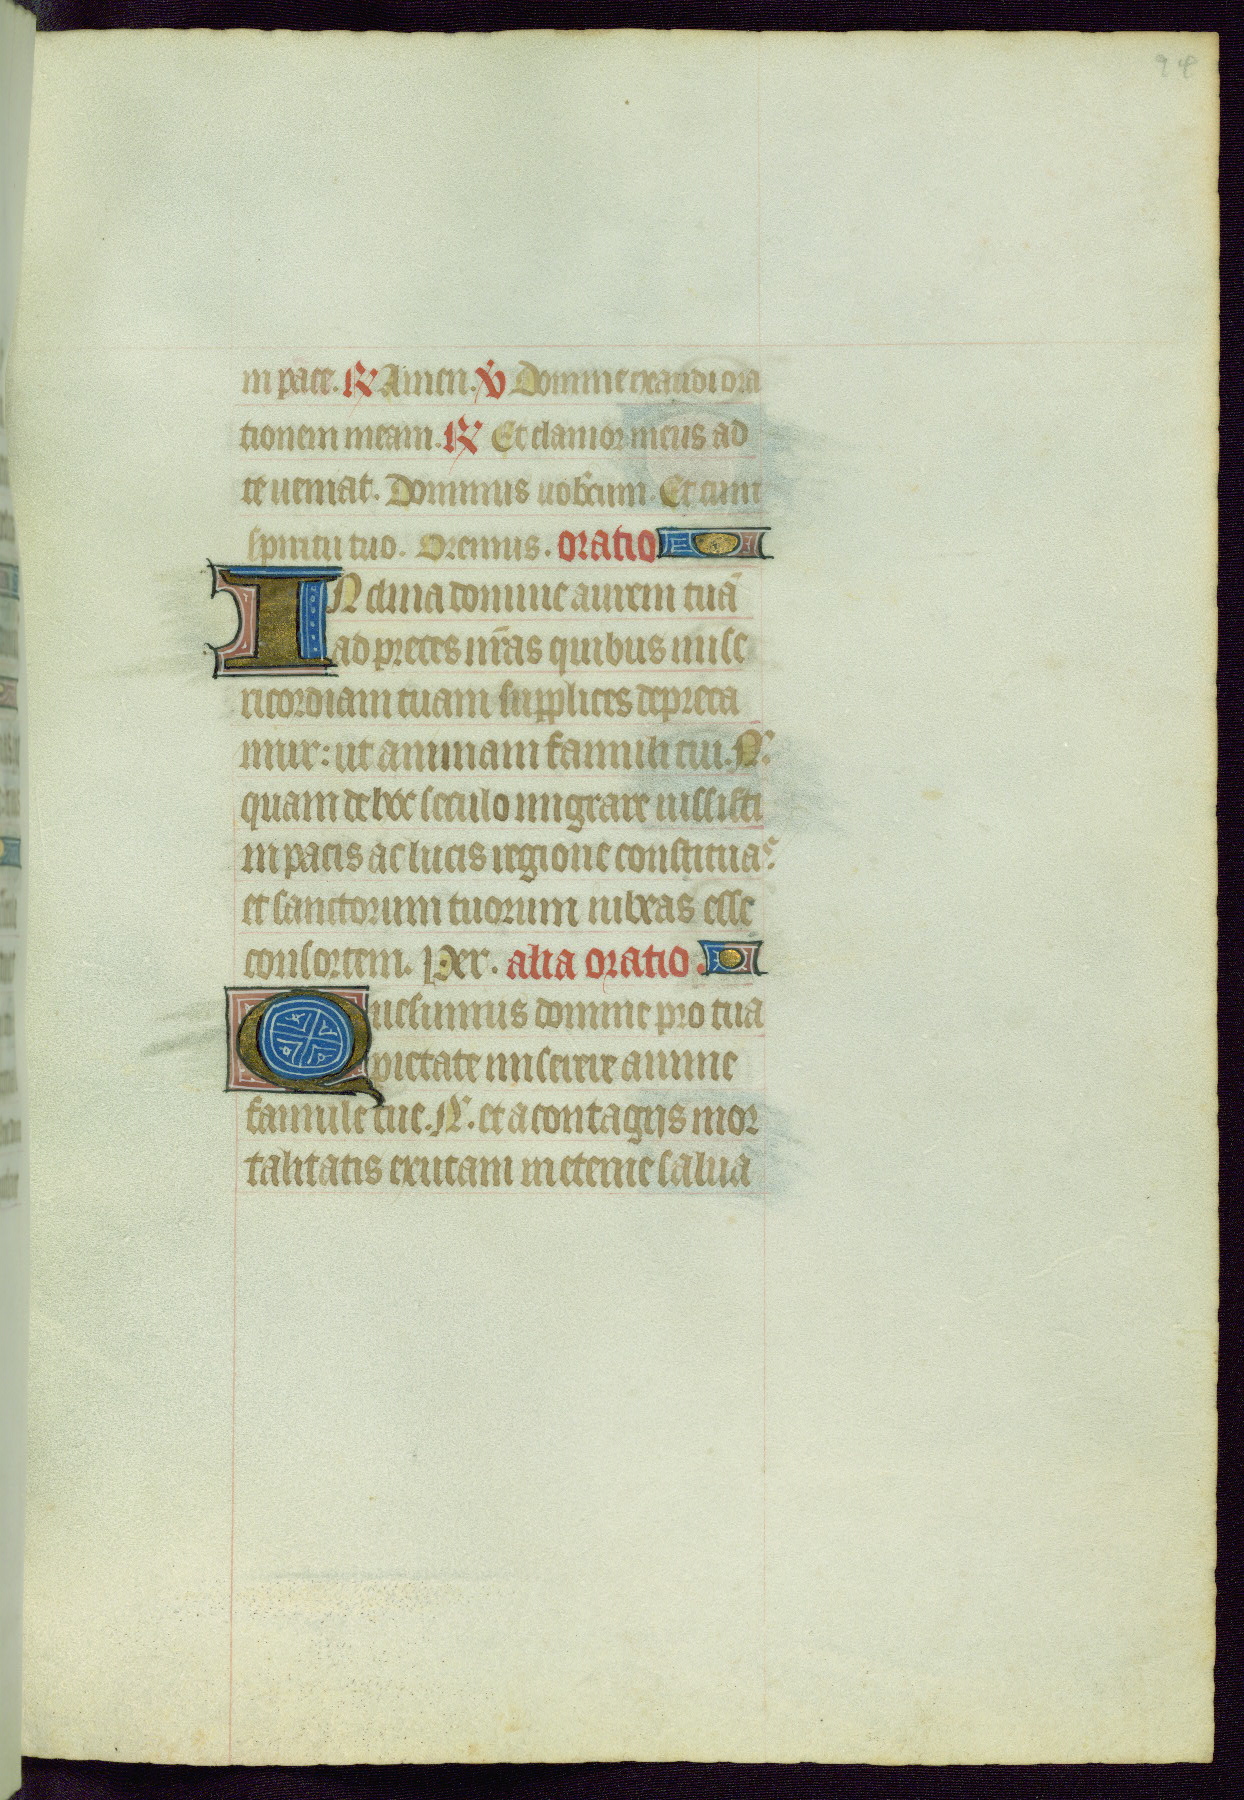 94
in pace. ℟ Amen. ℣ Domine exaudi ora
tionem meam. ℟ Et clamor meus ad
te ueniat. Dominus uobiscum. Et cum
spiritu tuo. Oremus. oratio
INclina domine aurem tuā
ad preces nr̄as quibus mise
ricordiam tuam supplices depreca
mur: ut animam famuli tui. N.
quam de hoc seculo migrare iussisti
in pacis ac lucis regione constituas
et sanctorum tuorum iubeas esse
consortem. Per. alia oratio.
Quesumus domine pro tua
pietate miserere anime
famule tue. N. et a contagijs mor
talitatis exutam in eterne salua